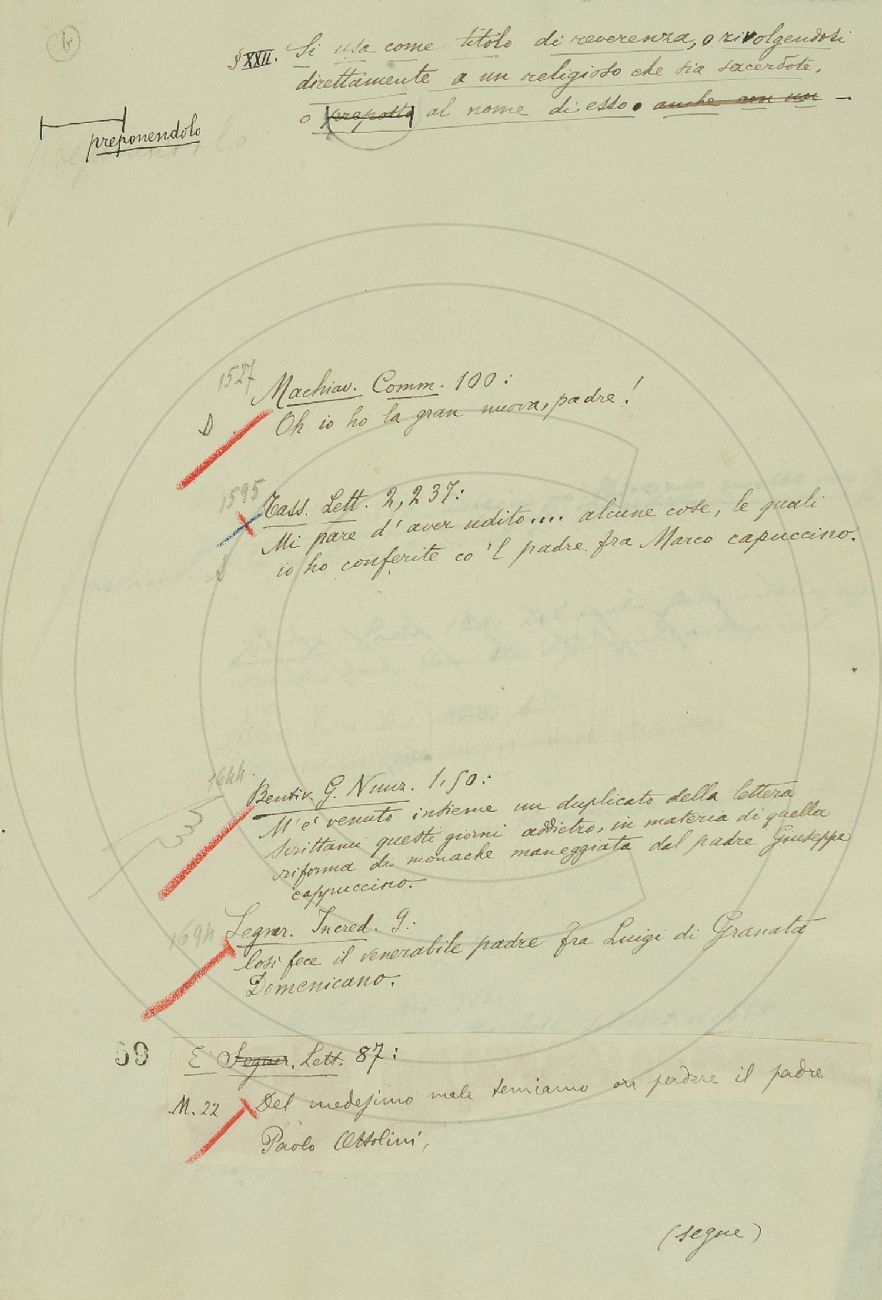 § XXII. Si usa come titolo di reverenza, o rivolgendosi
direttamente a un religioso che sia sacerdote,
o preposto al nome di esso. anche con un —
preponendolo
1527
Machiav. Comm. 100:
D
Oh io ho la gran nuova, padre!
1595
Tass. Lett. 2, 237:
Mi pare d'aver udito.... alcune cose, le quali
io ho conferite co 'l padre fra Marco capuccino.
1644
Bentiv. G. Nunz. 1, 50:
M'è venuto insieme un duplicato della lettera
scrittami questi giorni addietro, in materia di quella
riforma di monache maneggiata dal padre Giuseppe
cappuccino.
1694
Segner. Incred. 9:
Così fece il venerabile padre fra Luigi di Granata
Domenicano.
69
E Segner. Lett. 87:
M. 22 Del medesimo male temiamo ora perdere il padre
Paolo Ottolini,
(segue)